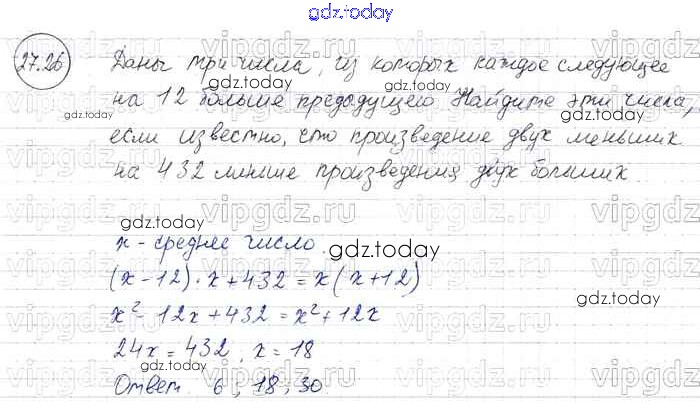 gdz.today
27.26
Даны три числа, из которых каждое следующее
gdz.today
на 12 больше предыдущего. Найдите эти числа,
если известно, что произведение двух меньших
на 432 меньше произведения двух больших.
gdz.today
vipgdz.ru
gdz.today
x - среднее число.
gdz.today
(x-12)·x+432=x(x+12)
gdz.today
x²-12x+432=x²+12x
24x=432, x=18
gdz.today
Ответ 6; 18; 30.